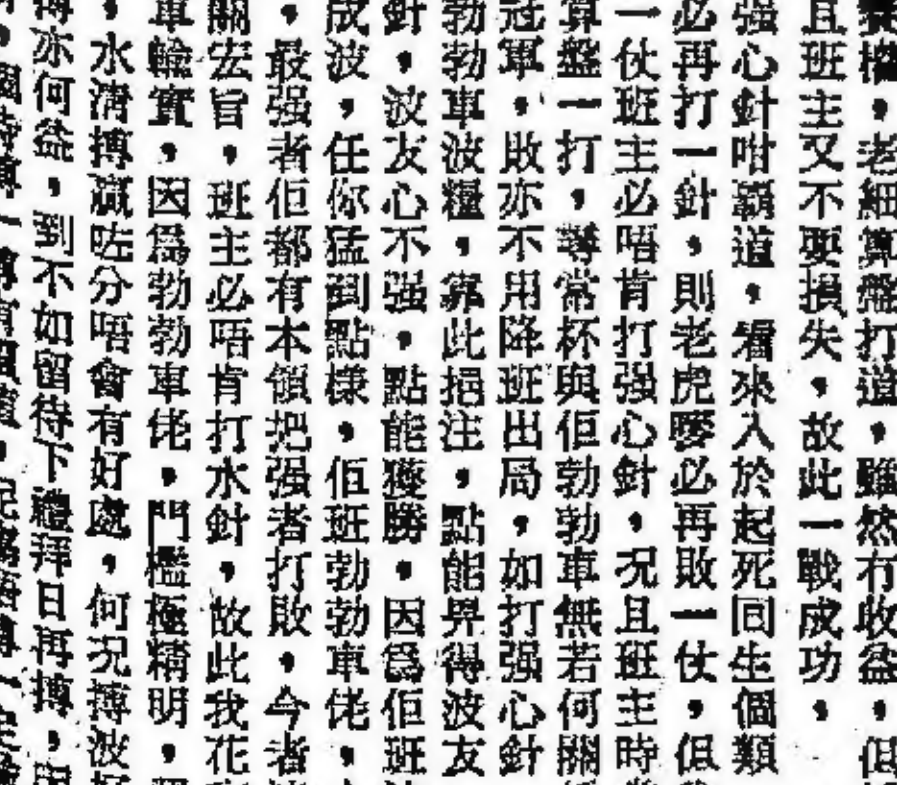 老細算盤打道,雖然有收益,但
且班主又不要損失,故此一戰成功,
强心針咁覇道,看來入於起死回生個類
必再打一針,則老虎嘜必再敗一仗,但
一仗班主必唔肯打强心針,况且班主時
算盤一打,尋常杯與佢勃勃車無若何關
冠軍,敗亦不用降班出局,如打强心針
勃勃車波糧,靠此挹注,點能畀得波友
針,波友心不强,點能獲勝,因爲佢班
成波,任你猛到點樣,佢班勃勃車佬,
,最强者佢都有本領把强者打敗,今者
關宏旨,班主必唔肯打水針,故此我花
車輪實,因爲勃勃車佬,門檻極精明,
,水清搏贏咗分唔會有好處,何况搏波
亦何益,到不如留待下禮拜日再搏,